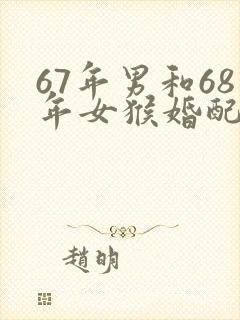 67年男和68
年女猴婚配
趙明